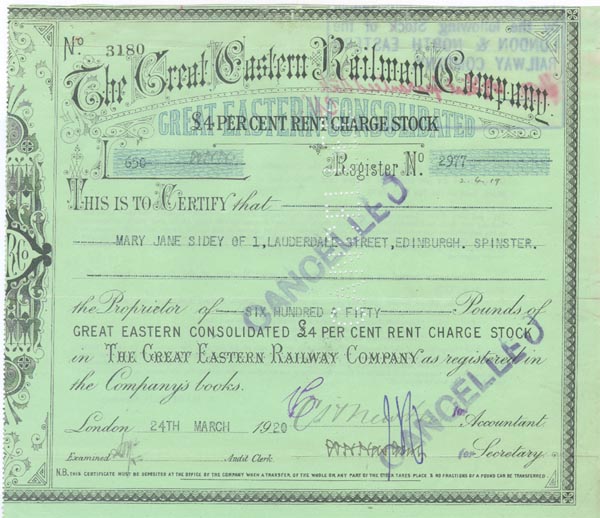 the following Stock of the
LONDON & NORTH EASTERN
RAILWAY COMPANY
No 3180
The Great Eastern Railway Company.
GREAT EASTERN CONSOLIDATED
£4 PER CENT RENT CHARGE STOCK
£ 650
Register No. 2977
2.4.19
THIS IS TO CERTIFY that
MARY JANE SIDEY OF 1, LAUDERDALE STREET, EDINBURGH. SPINSTER.
the Proprietor of SIX HUNDRED & FIFTY Pounds of
GREAT EASTERN CONSOLIDATED £4 PER CENT RENT CHARGE STOCK
in THE GREAT EASTERN RAILWAY COMPANY as registered in
the Company's books.
London 24TH MARCH 1920
for Accountant
Examined Audit Clerk. for Secretary
N.B. THIS CERTIFICATE MUST BE DEPOSITED AT THE OFFICE OF THE COMPANY WHEN A TRANSFER, OF THE WHOLE OR ANY PART OF THE STOCK TAKES PLACE & NO FRACTIONS OF A POUND CAN BE TRANSFERRED
CANCELLED
CANCELLED
RCo